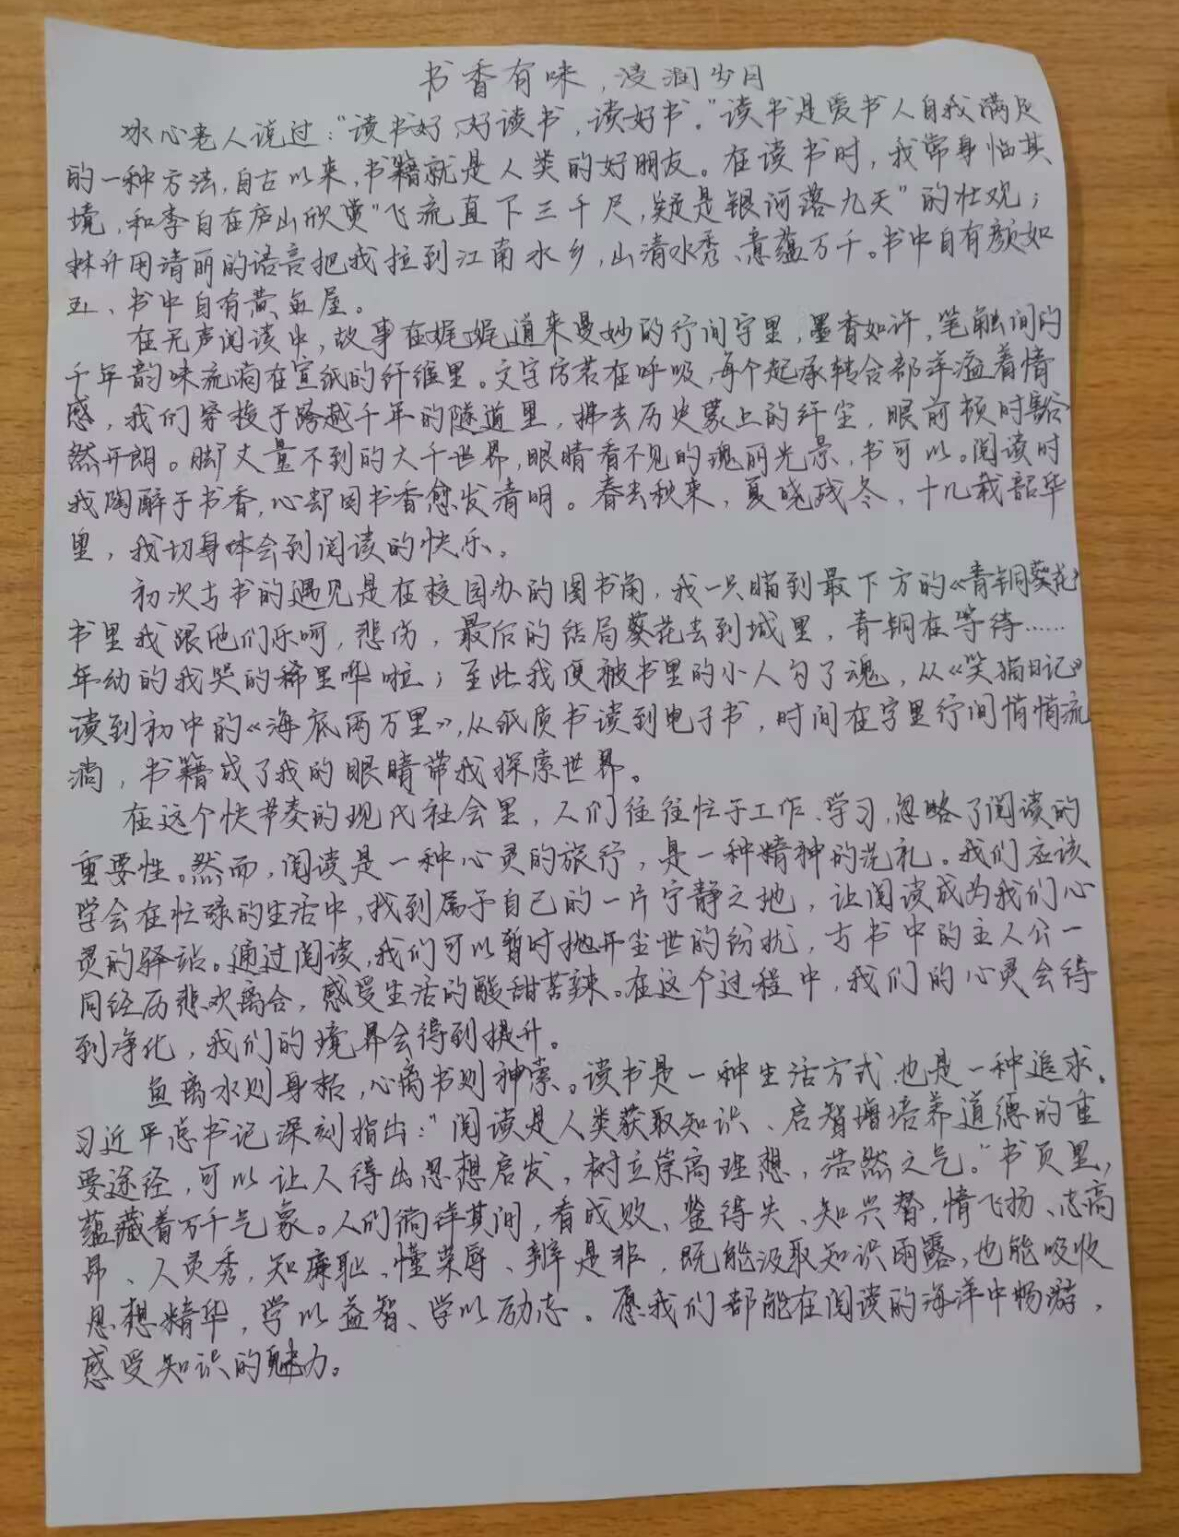 书香有味,浸润岁月
冰心老人说过:“读书好、好读书,读好书。”读书是爱书人自我满足
的一种方法,自古以来,书籍就是人类的好朋友。在读书时,我常身临其
境,和李白在庐山欣赏“飞流直下三千尺,疑是银河落九天”的壮观;
林升用清丽的语言把我拉到江南水乡,山清水秀、意蕴万千。书中自有颜如
玉、书中自有黄金屋。
在无声阅读中,故事在娓娓道来曼妙的行间字里,墨香如许,笔触间的
千年韵味流淌在宣纸的纤维里。文字仿若在呼吸,每个起承转合都洋溢着情
感,我们穿梭于跨越千年的隧道里,拂去历史蒙上的纤尘,眼前顿时豁
然开朗。脚丈量不到的大千世界,眼睛看不见的瑰丽光景,书可以。阅读时
我陶醉于书香,心却因书香愈发清明。春去秋来,夏晓残冬,十几载韶华
里,我切身体会到阅读的快乐。
初次与书的遇见是在校园办的图书角,我一只瞄到最下方的《青铜葵花》
书里我跟他们乐呵,悲伤,最后的结局葵花去到城里,青铜在等待……
年幼的我哭的稀里哗啦;至此我便被书里的小人勾了魂,从《笑猫日记》
读到初中的《海底两万里》,从纸质书读到电子书,时间在字里行间悄悄流
淌,书籍成了我的眼睛带我探索世界。
在这个快节奏的现代社会里,人们往往忙于工作、学习,忽略了阅读的
重要性。然而,阅读是一种心灵的旅行,是一种精神的洗礼。我们应该
学会在忙碌的生活中,找到属于自己的一片宁静之地,让阅读成为我们心
灵的驿站。通过阅读,我们可以暂时抛开尘世的纷扰,与书中的主人公一
同经历悲欢离合,感受生活的酸甜苦辣。在这个过程中,我们的心灵会得
到净化,我们的境界会得到提升。
鱼离水则身枯,心离书则神索。读书是一种生活方式,也是一种追求。
习近平总书记深刻指出:“阅读是人类获取知识、启智增培养道德的重
要途径,可以让人得出思想启发,树立崇高理想,浩然之气。”书页里,
蕴藏着万千气象。人们徜徉其间,看成败、鉴得失、知兴替,情飞扬、志高
昂、人灵秀,知廉耻、懂荣辱、辨是非,既能汲取知识雨露,也能吸收
思想精华,学以益智、学以励志。愿我们都能在阅读的海洋中畅游,
感受知识的魅力。